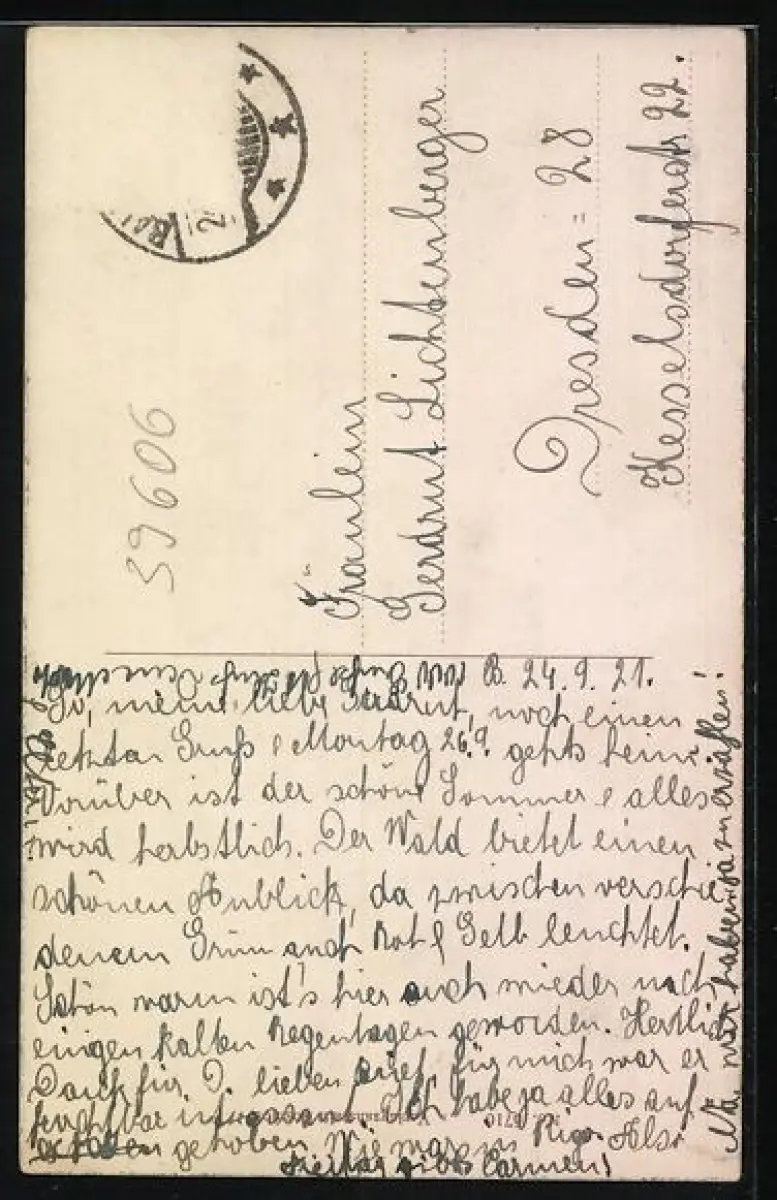 39606
Fräulein
Gerdrut Lichtenberger
Dresden = 28
Kesselsdorferstr. 22.
B. 24.9.21.
So, meine liebe Gerdrut, noch einen
Gruß! Montag 26.9. gehts heim.
Vorüber ist der schöne Sommer & alles
wird herbstlich. Der Wald bietet einen
schönen Anblick, da zwischen verschie
denem Grün auch Rot & Gelb leuchtet.
Schön warm ist's hier auch wieder nach
einigen kalten Regentagen geworden. Herzlich
Dank für D. lieben Brief, für mich war er
furchtbar Ich habe ja alles auf
gehoben. Wie war's in Also
gibts Carmen!
Na, wir haben ja zu erzählen!